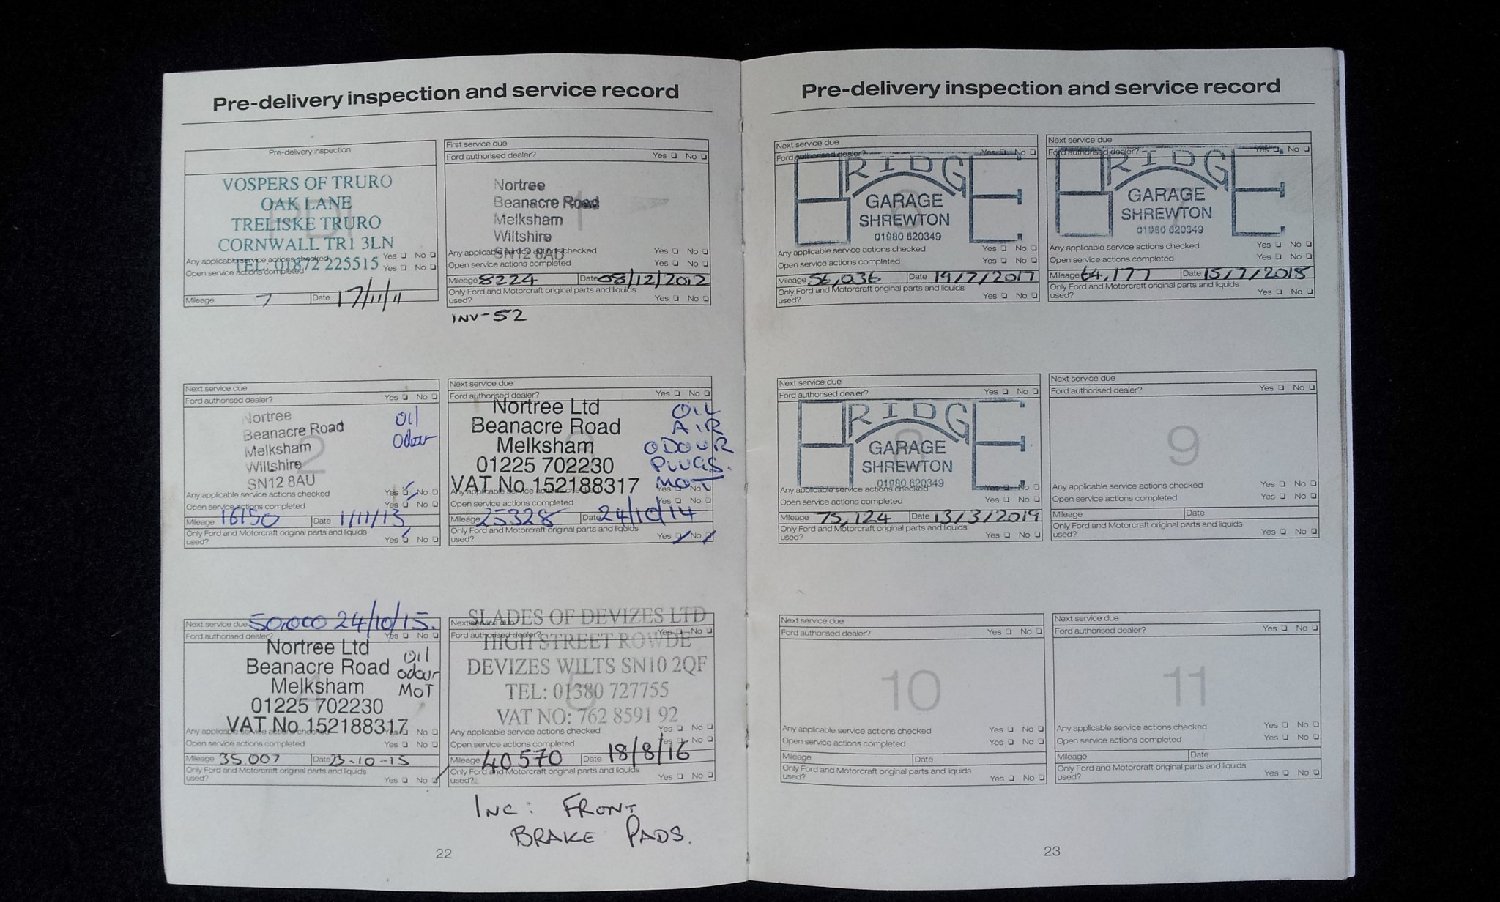 Pre-delivery inspection and service record
Pre-delivery inspection
VOSPERS OF TRURO
OAK LANE
TRELISKE TRURO
CORNWALL TR1 3LN
TEL: 01872 225515
Any applicable service actions checked Yes No
Open service actions completed Yes No
Mileage 7 Date 17/11/11
First service due
Ford authorised dealer? Yes No
1
Nortree
Beanacre Road
Melksham
Wiltshire
SN12 8AU
Any applicable service actions checked Yes No
Open service actions completed Yes No
Mileage 8224 Date 08/12/2012
Only Ford and Motorcraft original parts and liquids
used? Yes No
INV-52
Next service due
Ford authorised dealer? Yes No
2
Nortree
Beanacre Road
Melksham
Wiltshire
SN12 8AU
Oil
Odour
Any applicable service actions checked Yes No
Open service actions completed Yes No
Mileage 16150 Date 1/11/13
Only Ford and Motorcraft original parts and liquids
used? Yes No
Next service due
Ford authorised dealer? Yes No
Nortree Ltd
Beanacre Road
Melksham
01225 702230
VAT No 152188317
OIL
AIR
ODOUR
PLUGS.
MOT
Any applicable service actions checked Yes No
Open service actions completed Yes No
Mileage 25328 Date 24/10/14
Only Ford and Motorcraft original parts and liquids
used? Yes No
Next service due 50,000 24/10/15.
Ford authorised dealer? Yes No
Nortree Ltd
Beanacre Road
Melksham
01225 702230
VAT No 152188317
Oil
odour
MOT
Any applicable service actions checked Yes No
Open service actions completed Yes No
Mileage 35,007 Date 23-10-15
Only Ford and Motorcraft original parts and liquids
used? Yes No
Next service due
Ford authorised dealer? Yes No
5
SLADES OF DEVIZES LTD
HIGH STREET ROWDE
DEVIZES WILTS SN10 2QF
TEL: 01380 727755
VAT NO: 762 8591 92
Any applicable service actions checked Yes No
Open service actions completed Yes No
Mileage 40570 Date 18/8/16
Only Ford and Motorcraft original parts and liquids
used? Yes No
INC: FRONT
BRAKE PADS.
22
Pre-delivery inspection and service record
Next service due
Ford authorised dealer? Yes No
RIDGE
GARAGE
SHREWTON
01980 620349
Any applicable service actions checked Yes No
Open service actions completed Yes No
Mileage 56,036 Date 19/7/2017
Only Ford and Motorcraft original parts and liquids
used? Yes No
Next service due
Ford authorised dealer? Yes No
RIDGE
GARAGE
SHREWTON
01980 620349
Any applicable service actions checked Yes No
Open service actions completed Yes No
Mileage 64,177 Date 13/7/2018
Only Ford and Motorcraft original parts and liquids
used? Yes No
Next service due
Ford authorised dealer? Yes No
RIDGE
GARAGE
SHREWTON
01980 620349
Any applicable service actions checked Yes No
Open service actions completed Yes No
Mileage 75,124 Date 13/3/2019
Only Ford and Motorcraft original parts and liquids
used? Yes No
Next service due
Ford authorised dealer? Yes No
9
Any applicable service actions checked Yes No
Open service actions completed Yes No
Mileage Date
Only Ford and Motorcraft original parts and liquids
used? Yes No
Next service due
Ford authorised dealer? Yes No
10
Any applicable service actions checked Yes No
Open service actions completed Yes No
Mileage Date
Only Ford and Motorcraft original parts and liquids
used? Yes No
Next service due
Ford authorised dealer? Yes No
11
Any applicable service actions checked Yes No
Open service actions completed Yes No
Mileage Date
Only Ford and Motorcraft original parts and liquids
used? Yes No
23